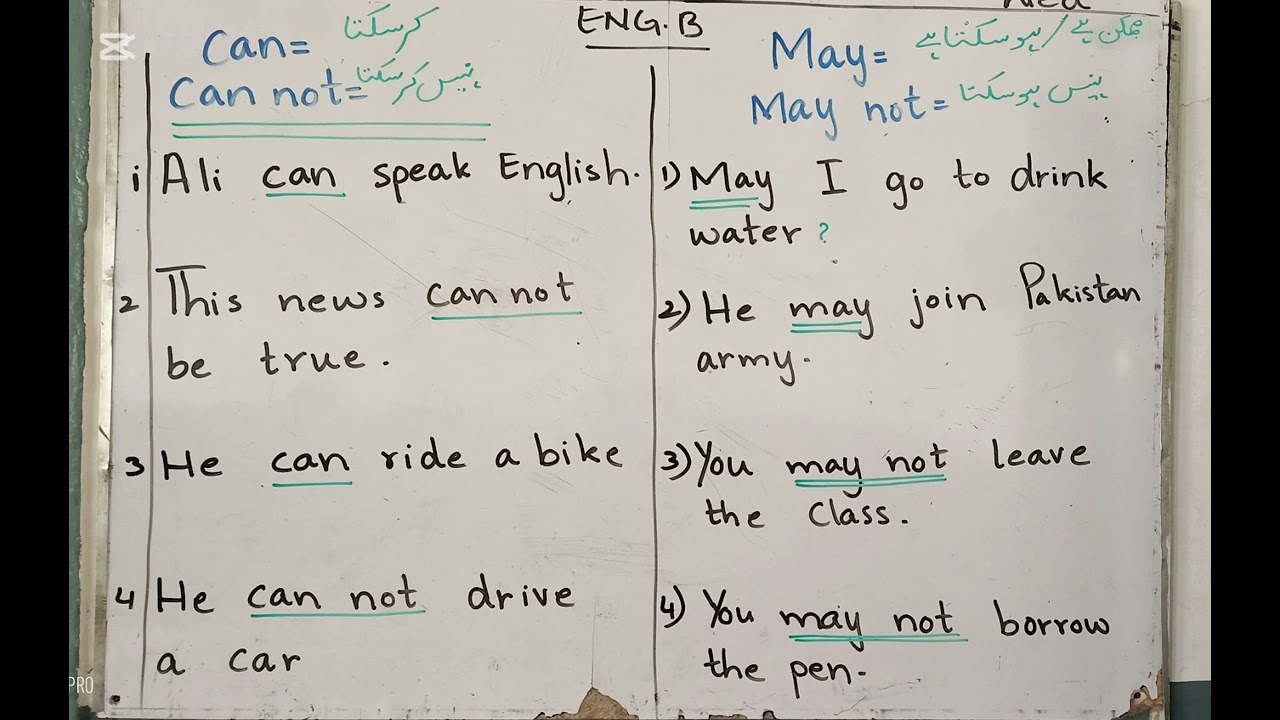 ENG.B
Can= کر سکتا
Can not= نہیں کر سکتا
i Ali can speak English.
2 This news can not
be true.
3 He can ride a bike
4 He can not drive
a car
May= ممکن ہے / ہو سکتا ہے
May not= نہیں ہو سکتا
1) May I go to drink
water?
2) He may join Pakistan
army.
3) You may not leave
the class.
4) You may not borrow
the pen.
PRO